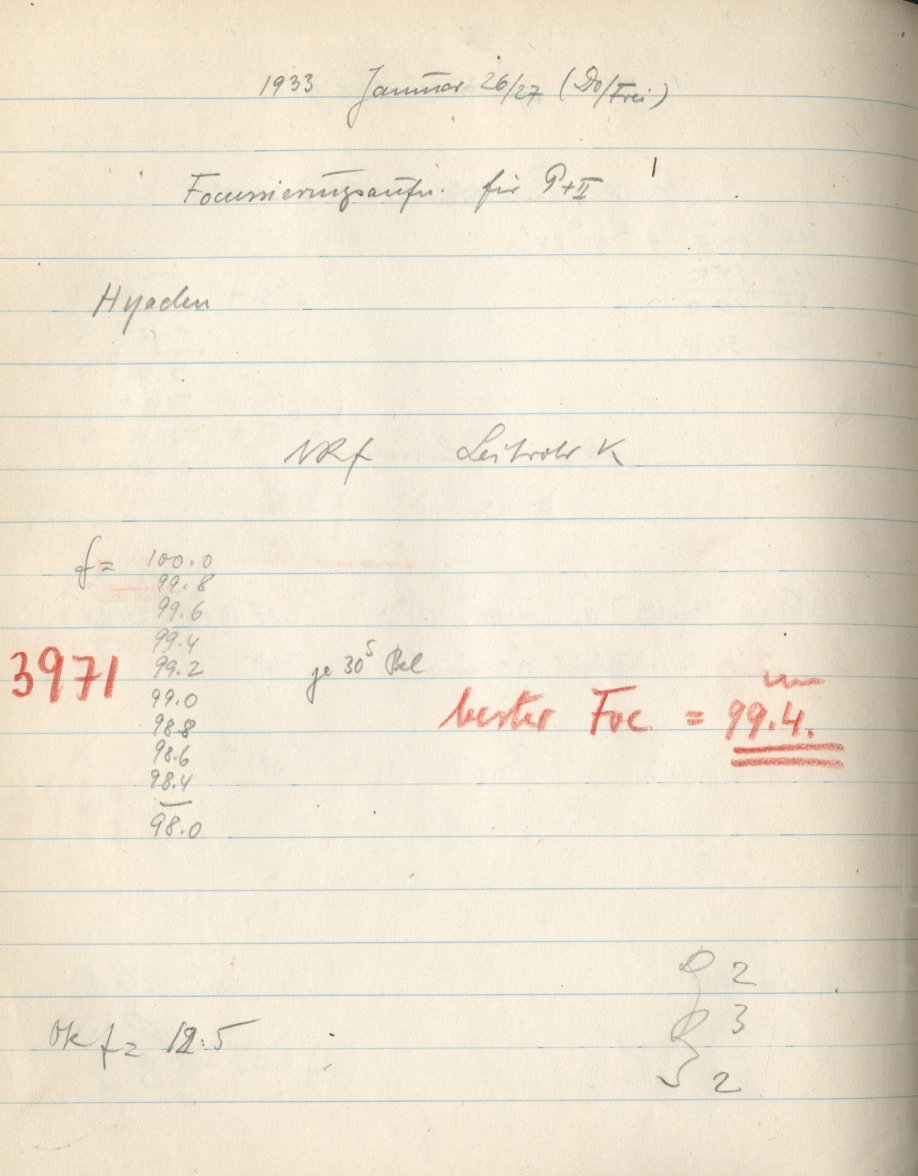 1933 Januar 26/27 (Do/Frei)
Focussierungsaufn. für P+II
Hyaden
Leitrohr K
f = 100.0
99.8
99.6
99.4
3971
99.2
je 30s Bel
99.0
bester Foc = 99.4.
98.8
98.6
98.4
98.0
2
3
Ok f = 12.5
2